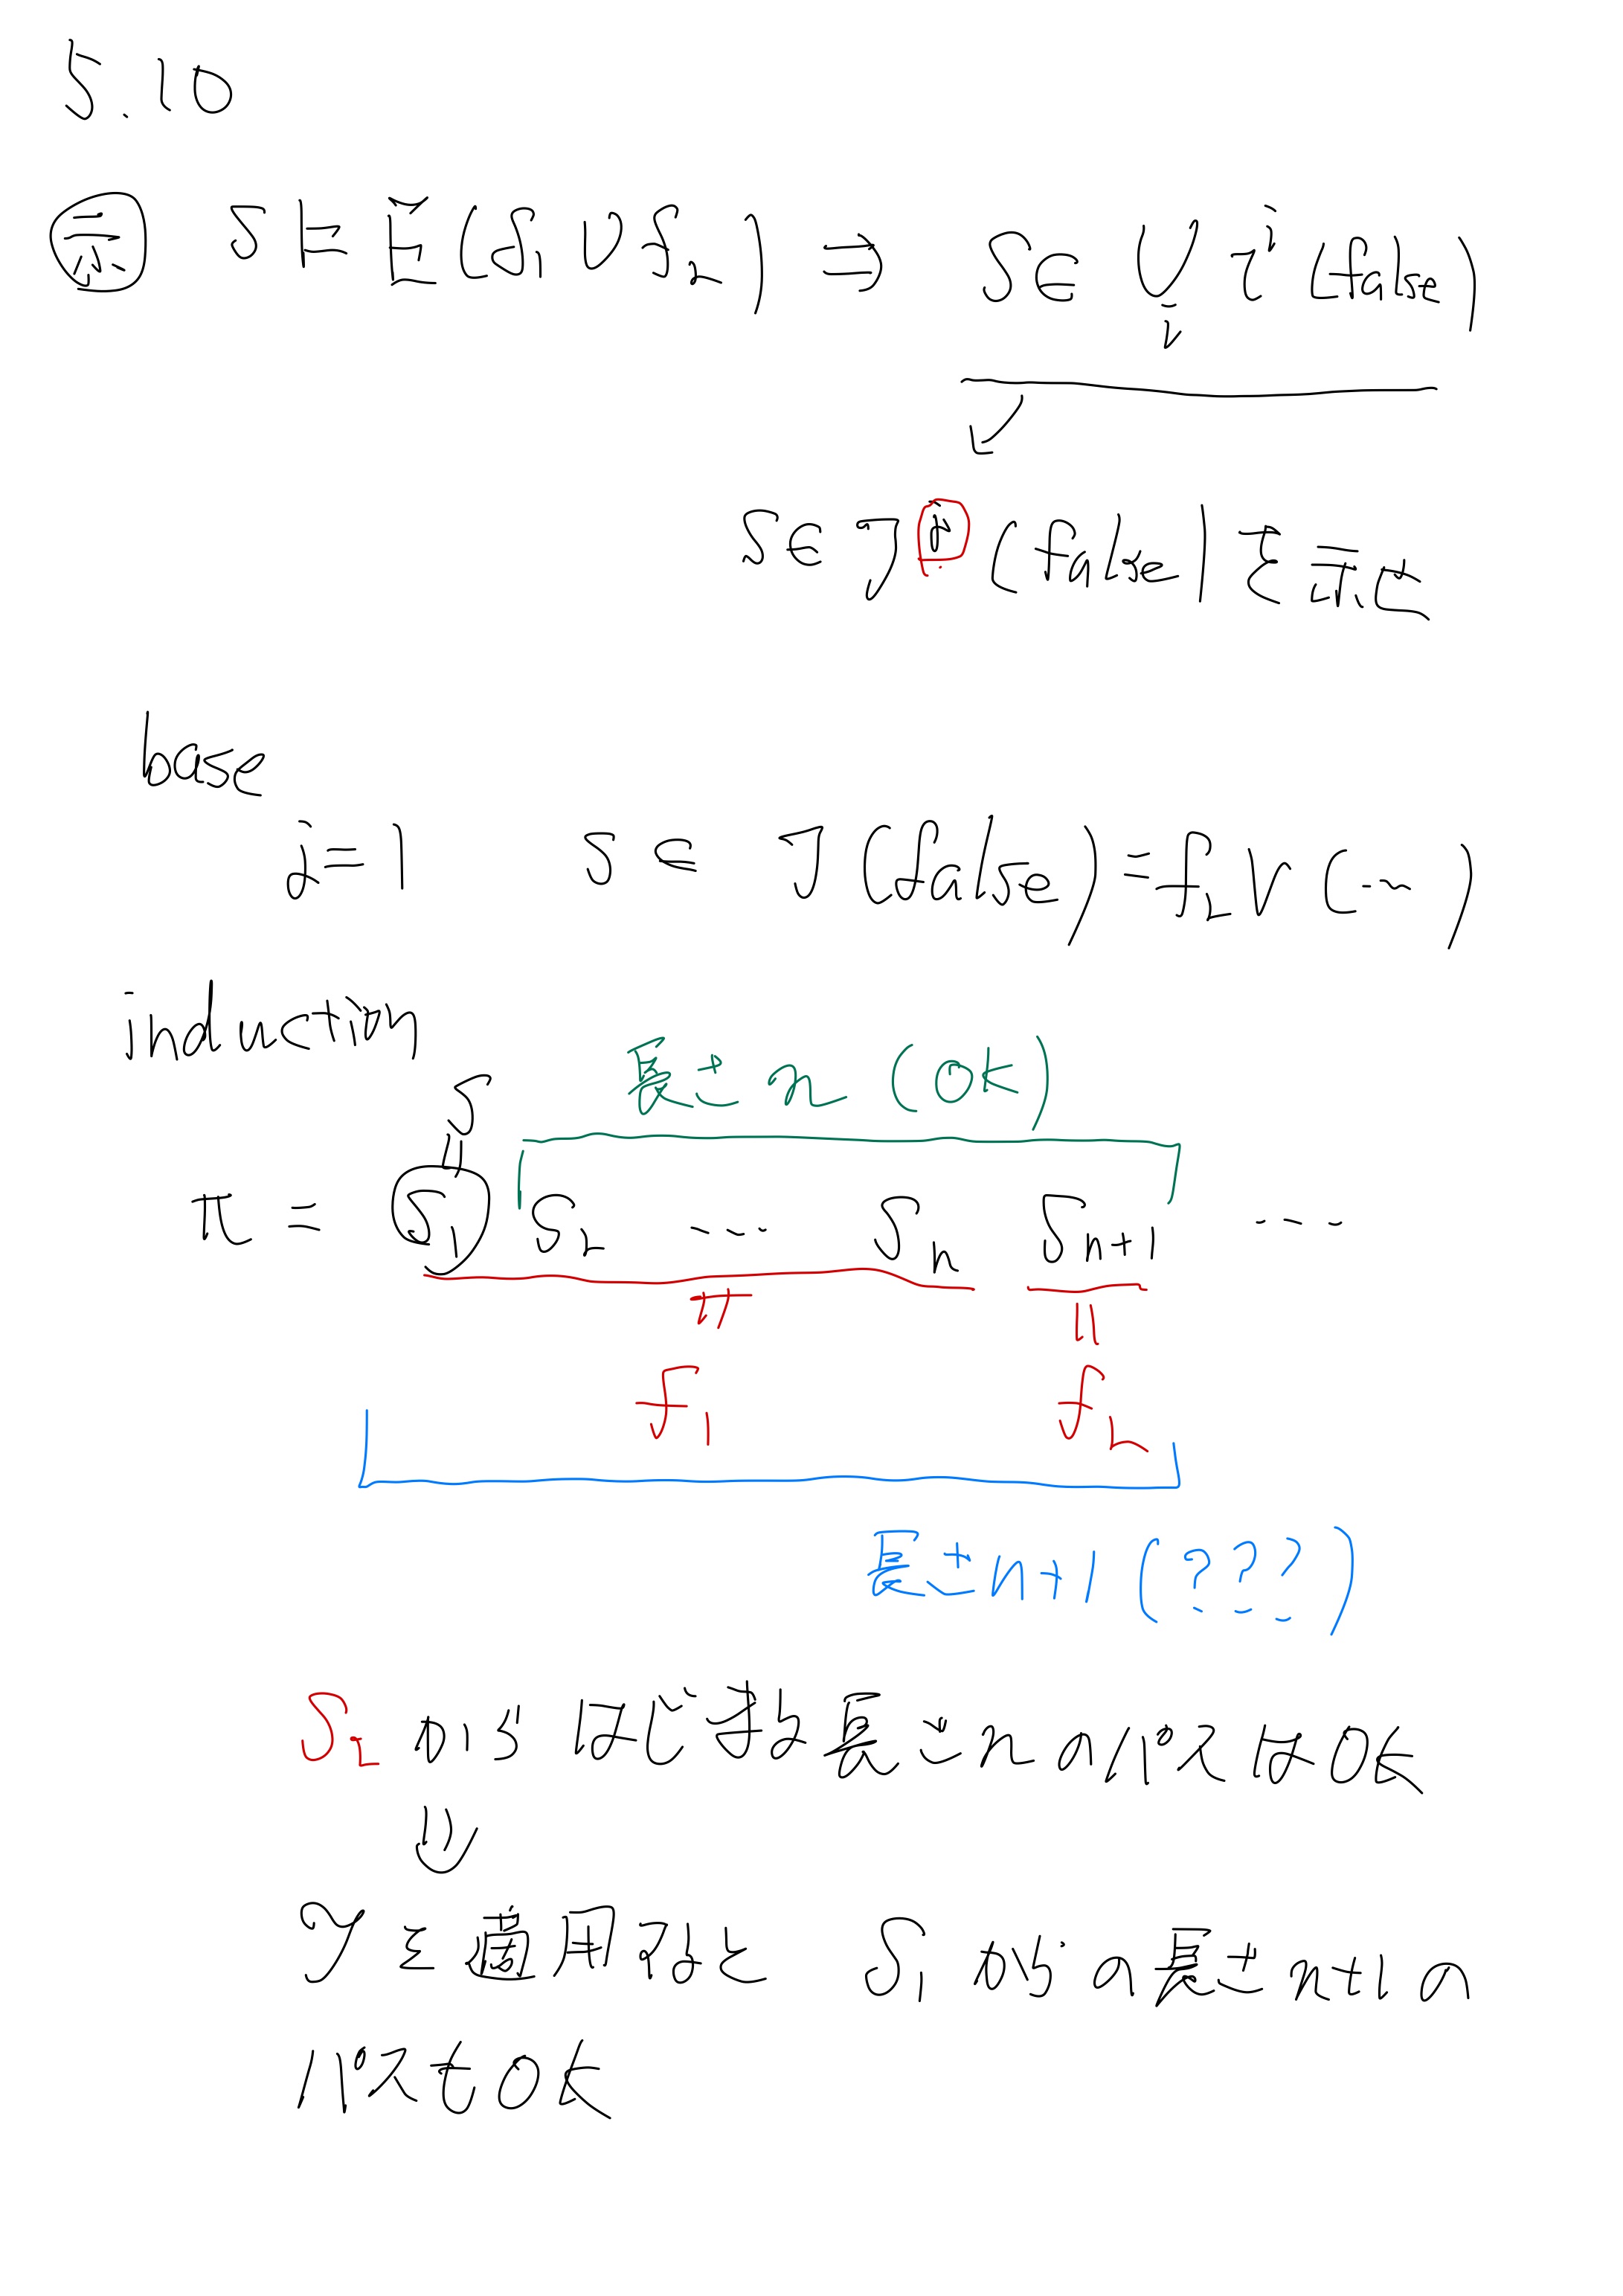 5.10
示 S ⊨ E (f₁ U f₂) ⇒ S ∈ ∪ᵢ τⁱ (false)
S ∈ τʲ (false) を示せ
base
j = 1 S ∈ τ (false) = f₂ ∨ (…)
induction
長さ n (OK)
S
π = S₁ S₂ … Sₙ Sₙ₊₁ …
f₁ f₂
長さ n+1 (???)
S₂ からはじまる長さ n のパスは OK
⇓
τ を適用すると S₁ からの長さ n+1 の
パスも OK